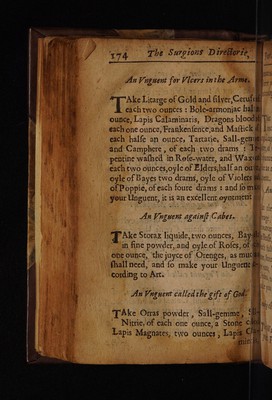 174 The Surgions Directorie,
An Unguent for Vlcers in the Arme.
TAke Litarge of Gold and silver, Ceruse
each two ounces: Bole-armoniac half
ounce, Lapis Calaminaris, Dragons bloud
each one ounce, Frankensence, and Mastick
each halfe an ounce, Tartarie, Sall-gem
and Camphere, of each two drams:
pentine washed in Rose-water, and Wax
each two ounces, oyle of Elders, half an oun
oyle of Bayes two drams, oyle of Violets
of Poppie, of each foure drams: and so m
your Unguent, it is an excellent oyntment
An Vnguent against Cabes.
TAke Storax liquide, two ounces, Bay
in fine powder, and oyle of Roses, of
one ounce, the juyce of Orenges, as muc
shall need, and so make your Unguent
cording to Art.
An Vnguent called the gift of God.
TAke Orras powder, Sall-gemme,
Nitrie, of each one ounce, a Stone
Lapis Magnates, two ounces, Lapis